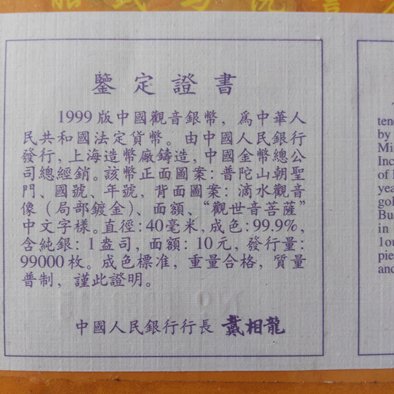 鑒定證書
1999版中國觀音銀幣，為中華人
民共和國法定貨幣。由中國人民銀行
發行，上海造幣廠鑄造，中國金幣總公
司總經銷。該幣正面圖案：普陀山朝聖
門、國號、年號，背面圖案：滴水觀音
像（局部鍍金）、面額、“觀世音菩薩”
中文字樣。直徑：40毫米，成色：99.9%，
含純銀：1盎司，面額：10元，發行量：
99000枚。成色標准，重量合格，質量
普制，謹此證明。
中國人民銀行行長 戴相龍
tend
by
Mi
Inc
of
yea
gol
Bu
in
1ou
pie
and